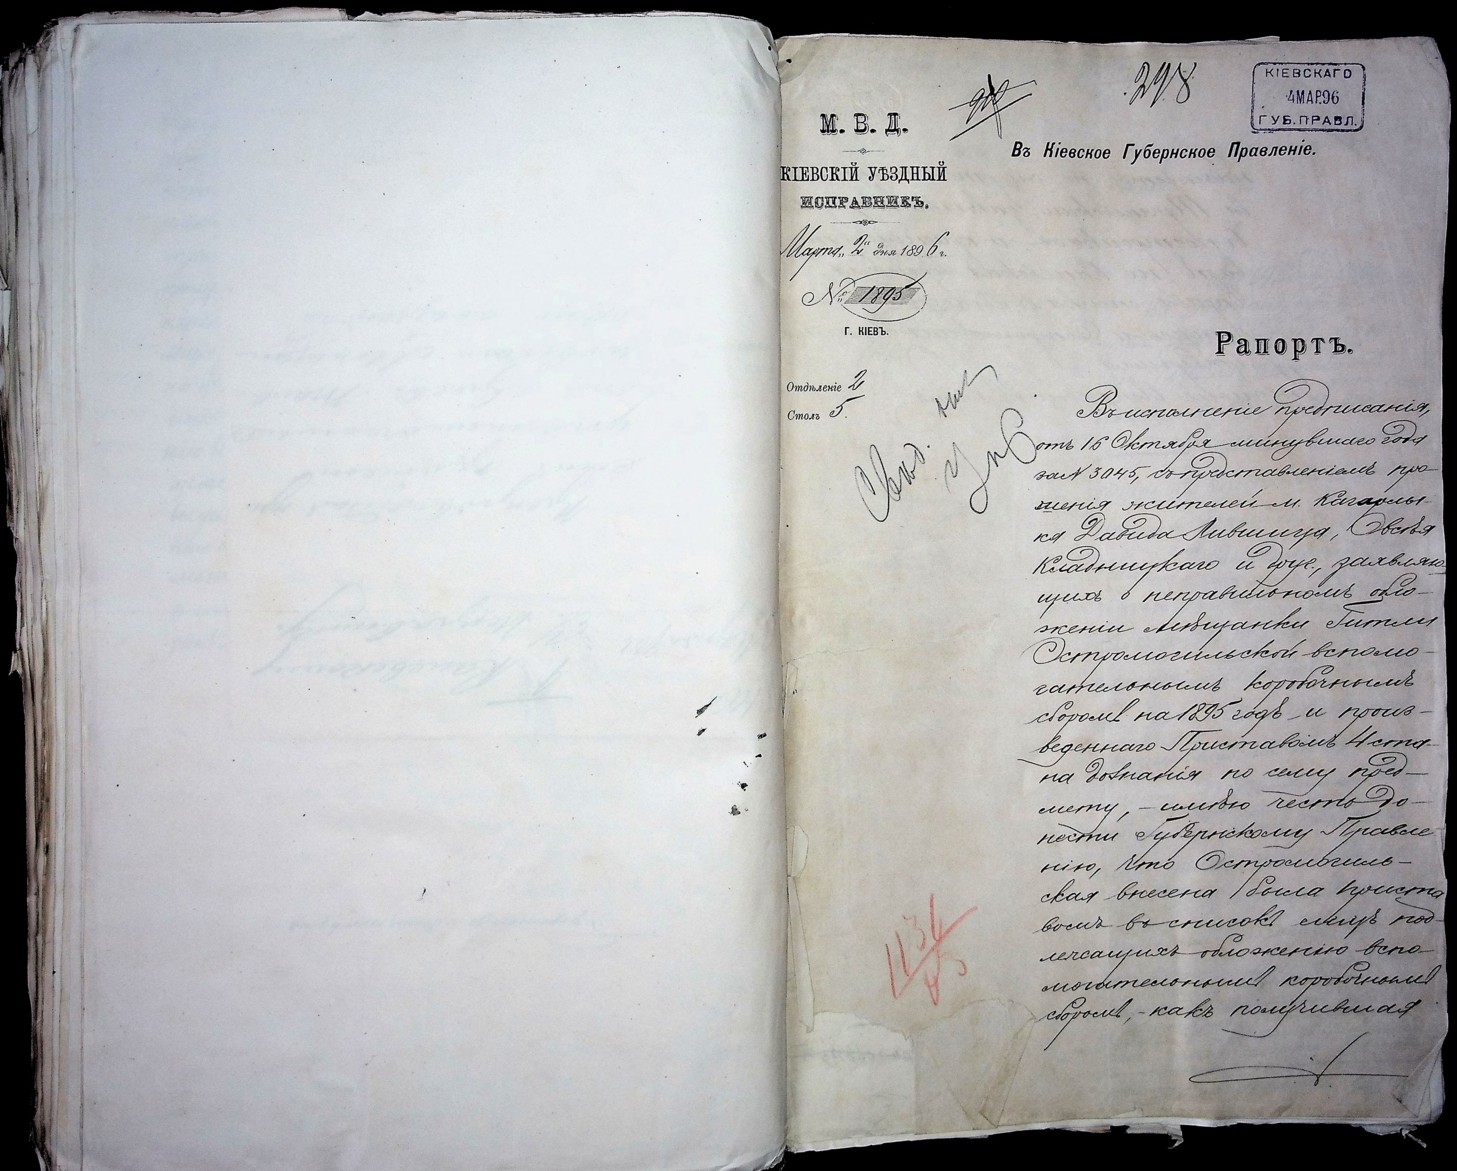 298
КІЕВСКАГО
4 МАР.96
ГУБ.ПРАВЛ.
М. В. Д.
КІЕВСКІЙ УѢЗДНЫЙ
ИСПРАВНИКЪ.
Марта „2" дня 1896 г.
№ 1895
Г. КІЕВЪ.
Отдѣленіе 2
Столъ 5.
Въ Кіевское Губернское Правленіе.
Рапортъ.
Въ исполненіе предписанія,
отъ 16 Октября минувшаго года
за N 3045, съ представленіемъ про-
шенія жителей м. Кагарлы-
ка Давида Лившица, Овсѣя
Кладницкаго и друг., заявляю-
щихъ о неправильномъ обло-
женіи мѣщанки Гитли
Остромогильской вспомо-
гательнымъ коробочнымъ
сборомъ на 1895 годъ и произ-
веденнаго Приставомъ 4 ста-
на дознанія по сему пред-
мету, - имѣю честь до-
нести Губернскому Правле-
нію, что Остромогиль-
ская внесена была приста
вомъ въ списокъ лицъ под-
лежащихъ обложенію вспо-
могательнымъ коробочнымъ
сборомъ, - какъ получившая
1136